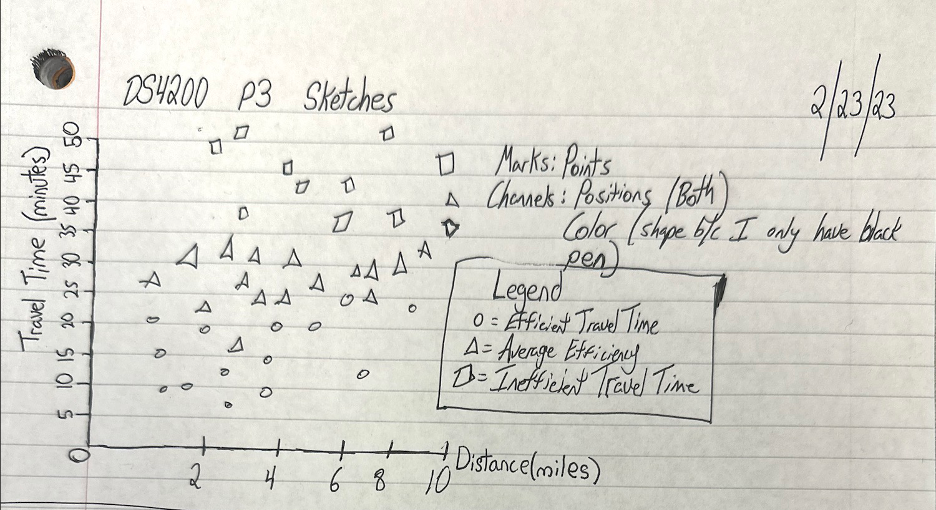 DS4200 P3 Sketches
2/23/23
Marks: Points
Channels: Positions (Both)
Color (shape b/c I only have black
pen)
Legend
O = Efficient Travel Time
Δ = Average Efficiency
□ = Inefficient Travel Time
Travel Time (minutes)
50
45
40
35
30
25
20
15
10
5
0
2 4 6 8 10 Distance (miles)